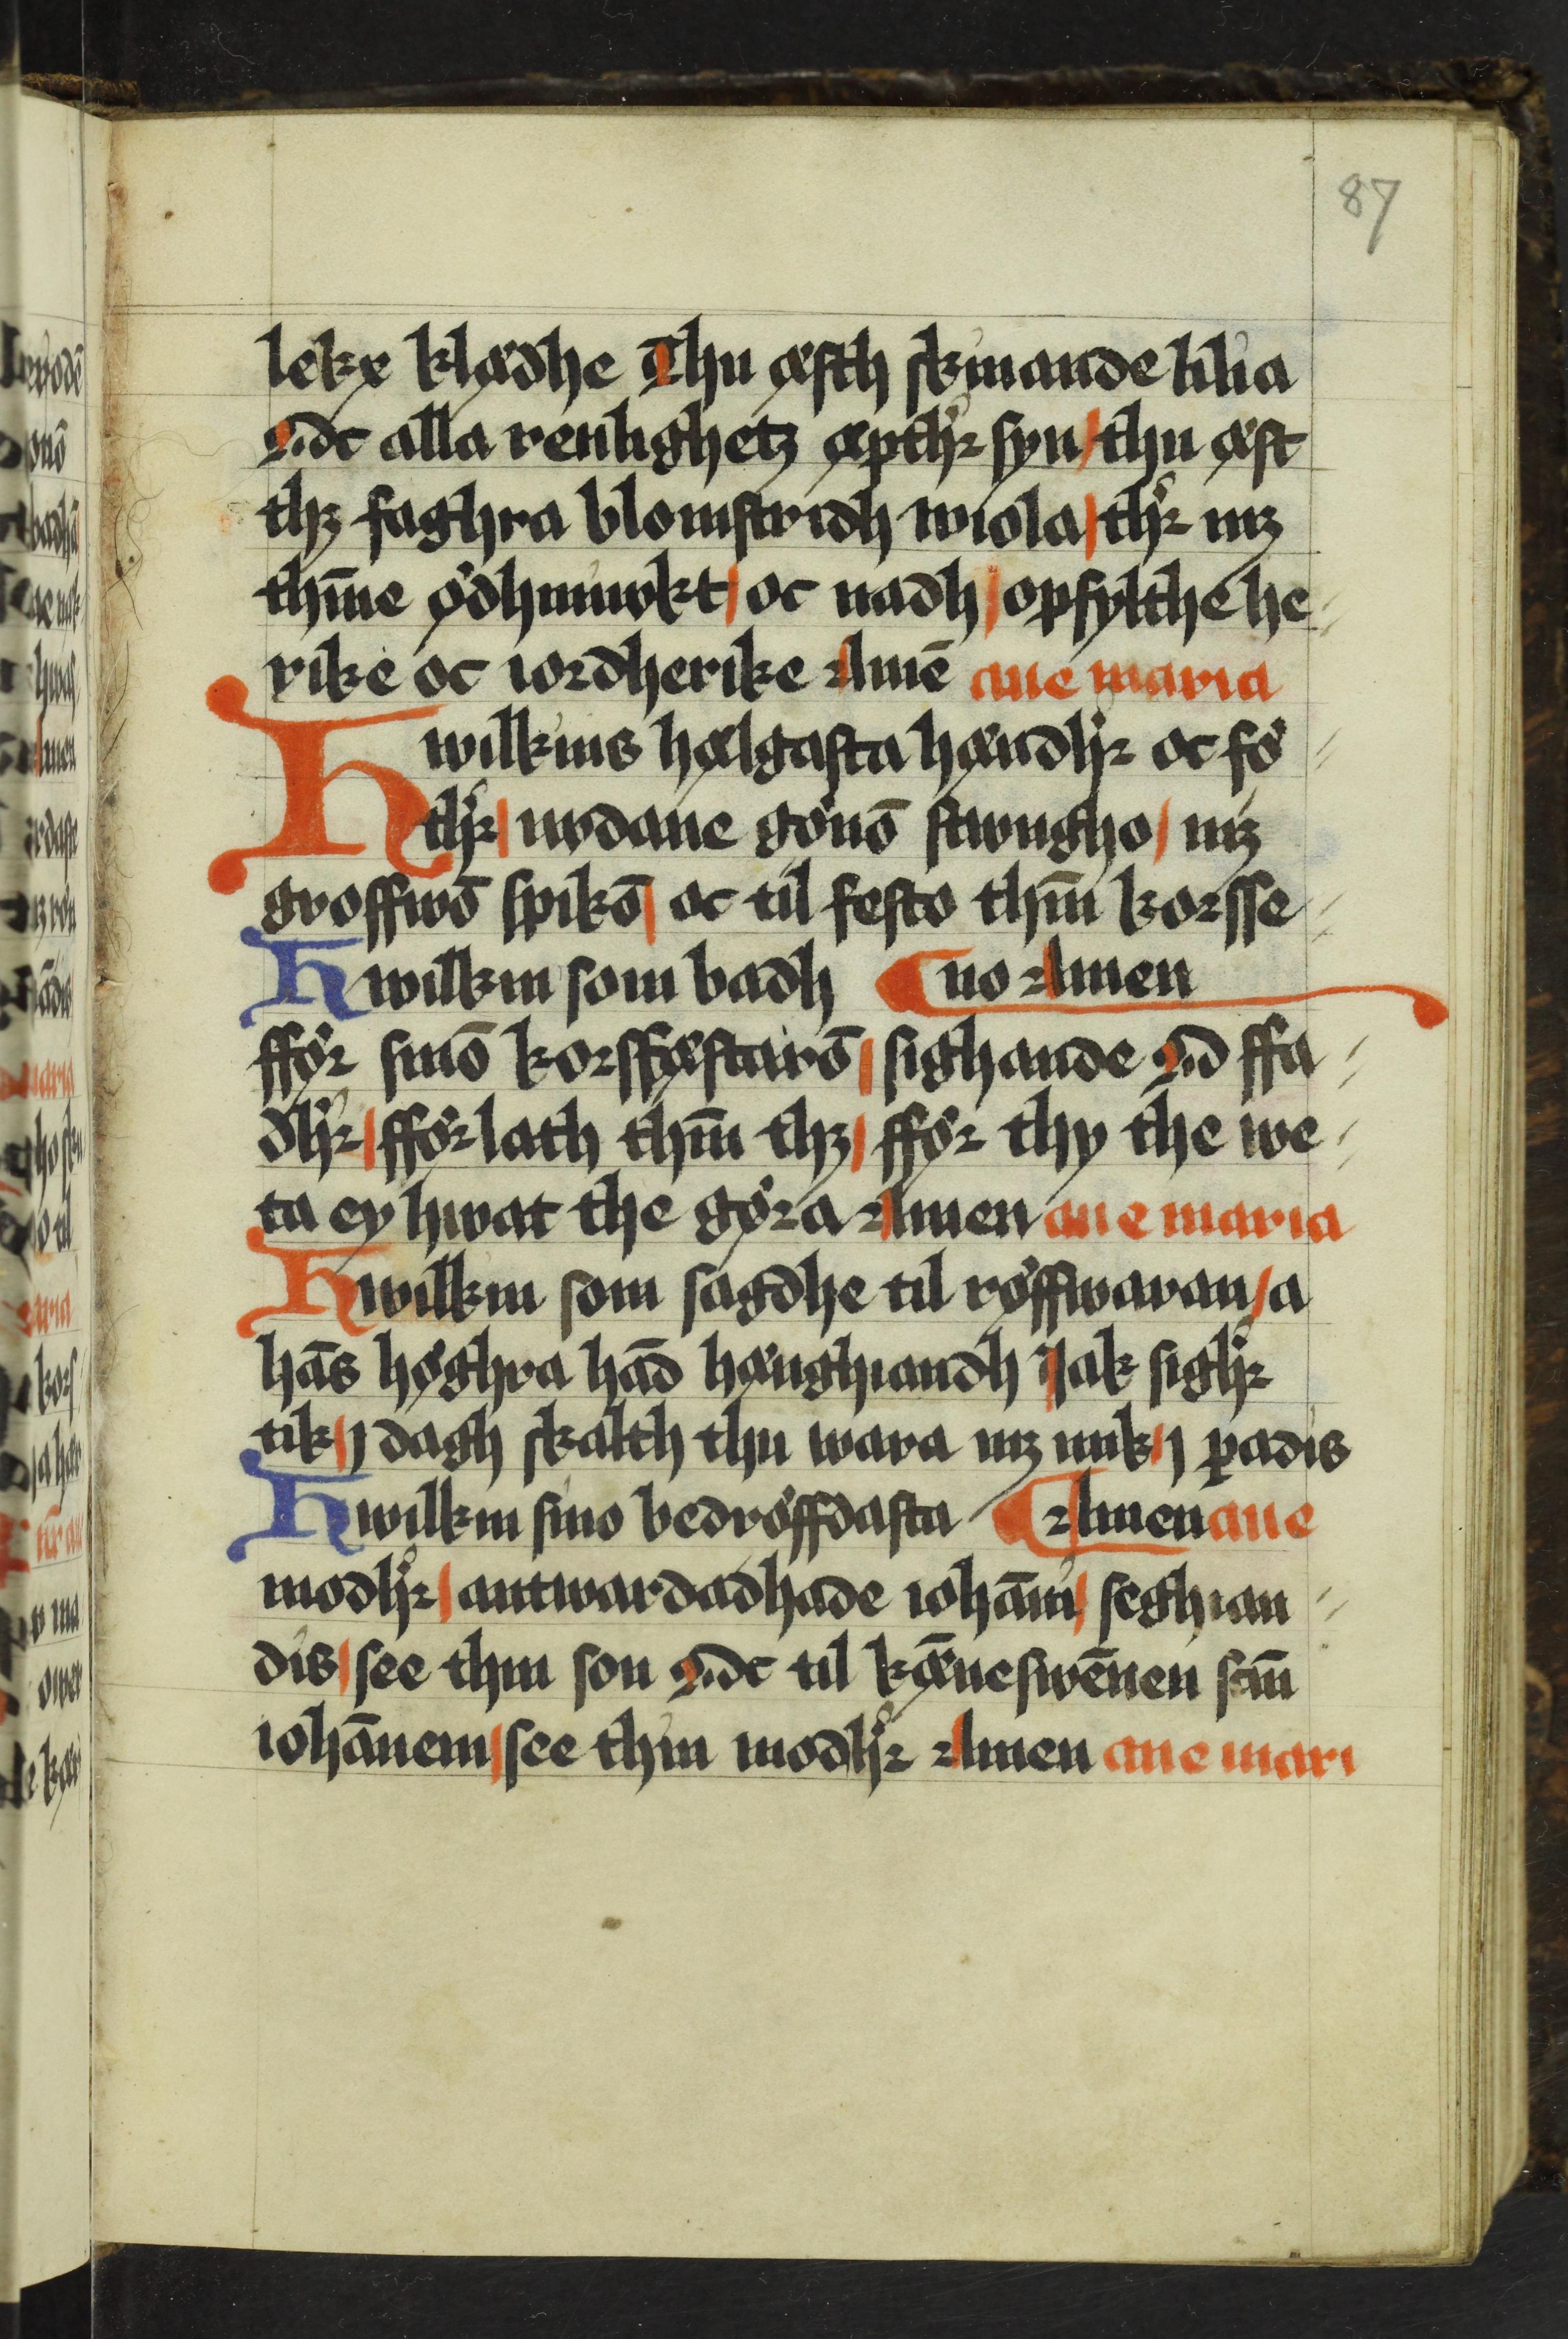 87
lekx klædhe Thu æsth skinande lilia
Oc alla renlighetz æpthr syn / thu æst
thz faghra blomstridh wiola / thr mz
thīne ødhmiwkt / oc nadh / opfylthe he
rike oc iordherike Amē aue maria
Hwilkins hælgasta hændhr oc fø
thr / wrdane gønō stwngho / mz
groffwō spikō / oc til festo thm̄ korsse
no Amen
Hwilkin som badh
ffør sinō korsfæstarō / sighande O ffa
dhr / fførlath thm̄ thz / ffør thy the we
ta ey hwat the gøra Amen aue maria
Hwilkin som sagdhe til røffwaran / a
hās høghra hād hænghiandh Jak sighr
tik / j dagh skalth thu wara mz mik / j padis
Amen aue
Hwilkin sino bedrøffdasta
modhr / antwardadhade iohānj / seghian
dis / see thin son Oc til kæneswēnen scm̄
iohānem / see thin modhr Amen aue mari